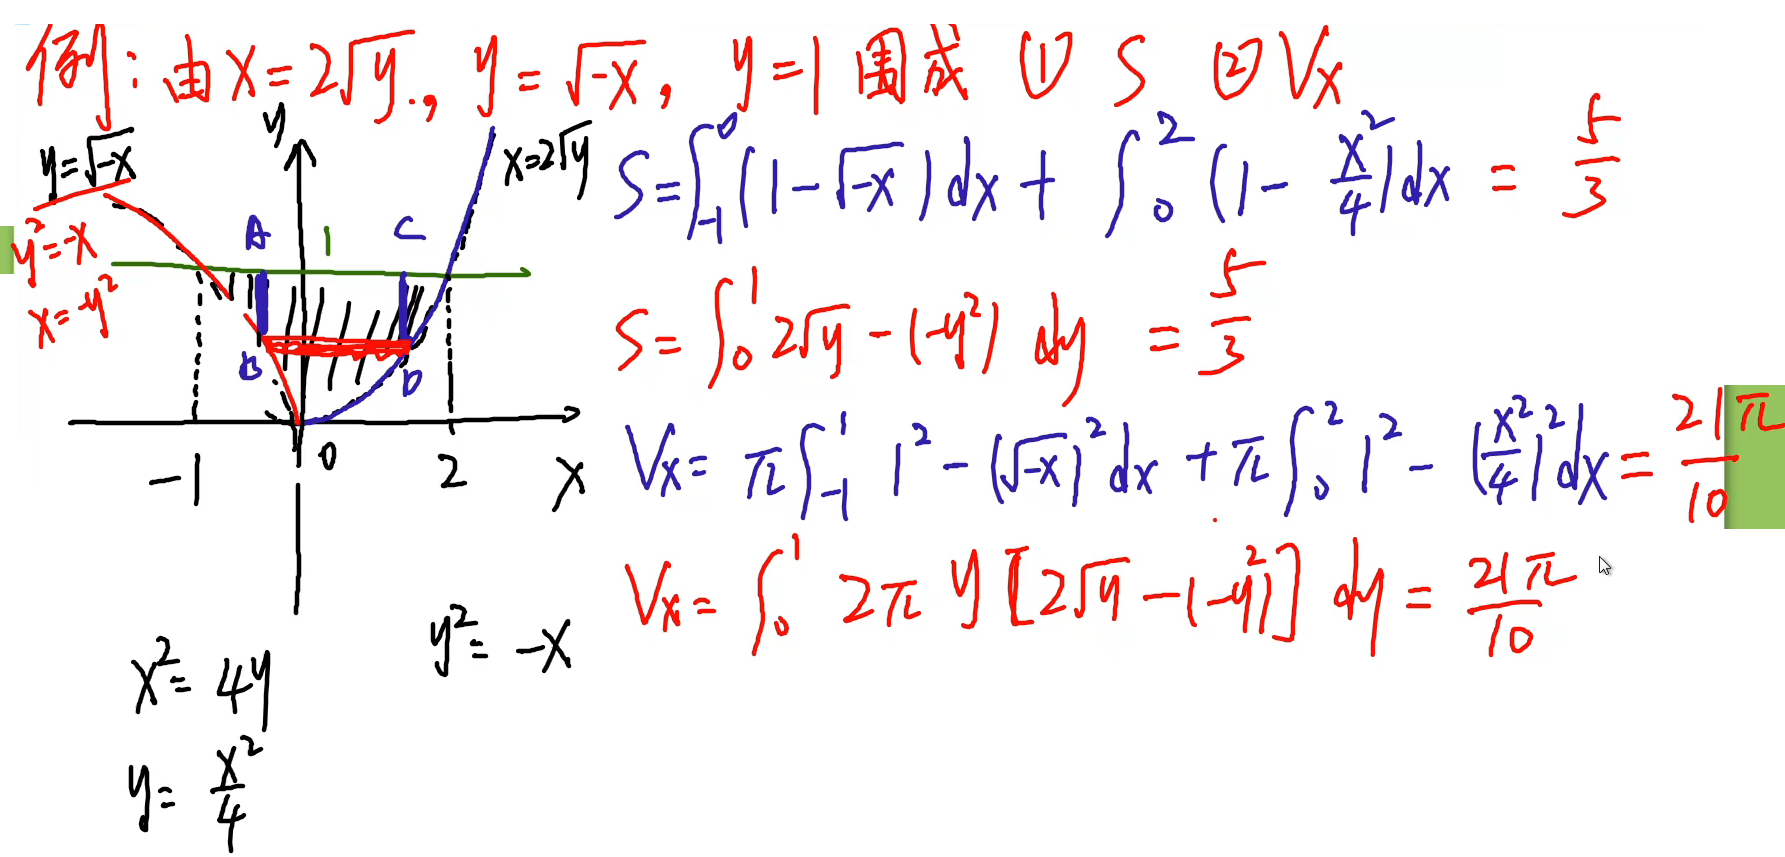 例：由 x=2√y., y=√-x, y=1 围成 ① S ② Vx
y=√-x
y²=-x
x=-y²
y
x=2√y
A
1
C
B
D
-1
0
2
x
S=∫₋₁⁰(1-√-x)dx+∫₀²(1-x²/4)dx = 5/3
S=∫₀¹ 2√y-(-y²) dy = 5/3
Vx= π∫₋₁¹ 1²-(√-x)²dx +π∫₀² 1²-(x²/4)²dx = 21π/10
Vx= ∫₀¹ 2π y [2√y-(-y²)] dy = 21π/10
y²= -x
x²= 4y
y= x²/4